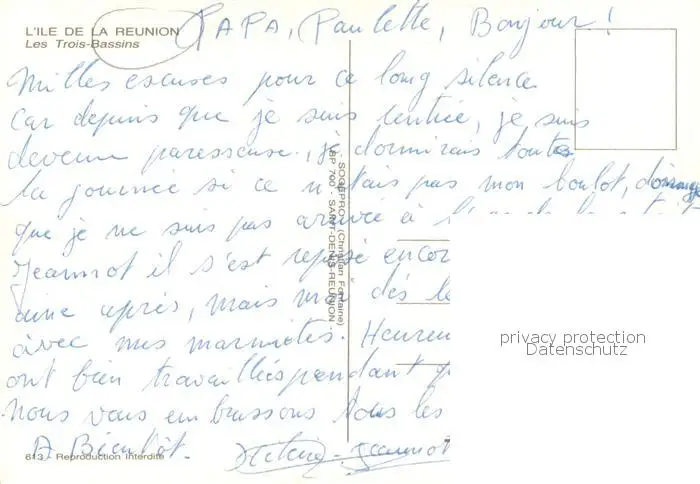 L'ILE DE LA REUNION
Les Trois-Bassins
PAPA, Paulette, Bonjour !
Milles excuses pour ce long silence
Car depuis que je suis rentrée, je suis
devenue paresseuse, je dormirais toutes
la journée si ce n'étais pas mon boulot, dommage
que je ne suis pas arrivée à
Jeannot il s'est reposé encor
aine après, mais moi dès le
avec mes marmites. Heureu
ont bien travaillés pendant q
Nous vous embrassons tous les
A Bientôt. Jeannot
SOGEPROS (Christian Fontaine)
BP 700 - SAINT-DENIS-REUNION
613 - Reproduction interdite
privacy protection
Datenschutz